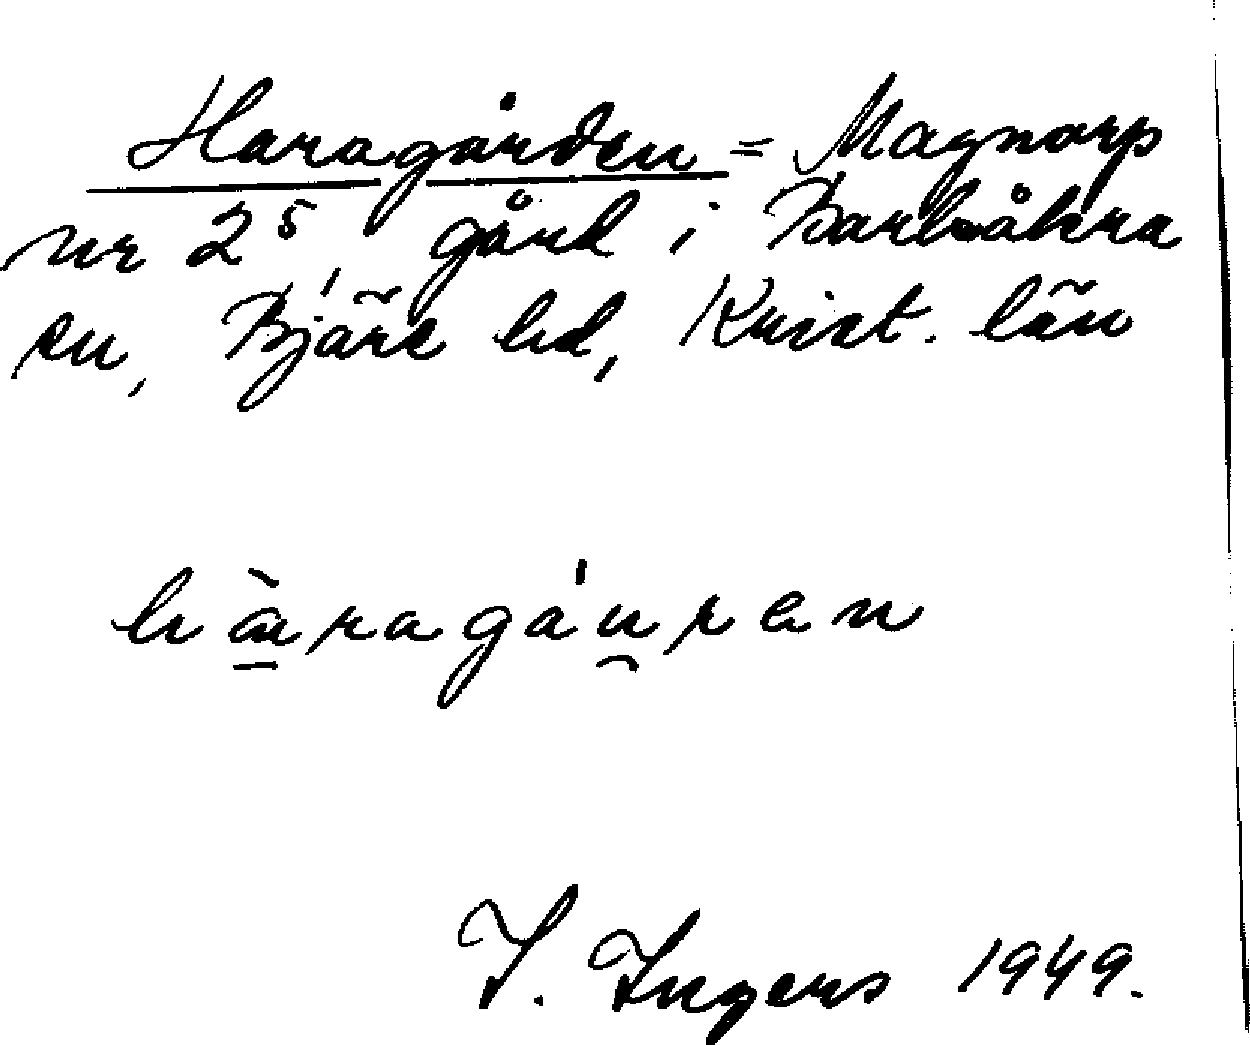 Haragården = Magnarp
nr 2⁵, gård i Barkåkra
sn, Bjäre hd, Krist. län
hàragáu̯ren
I. Ingers 1949.